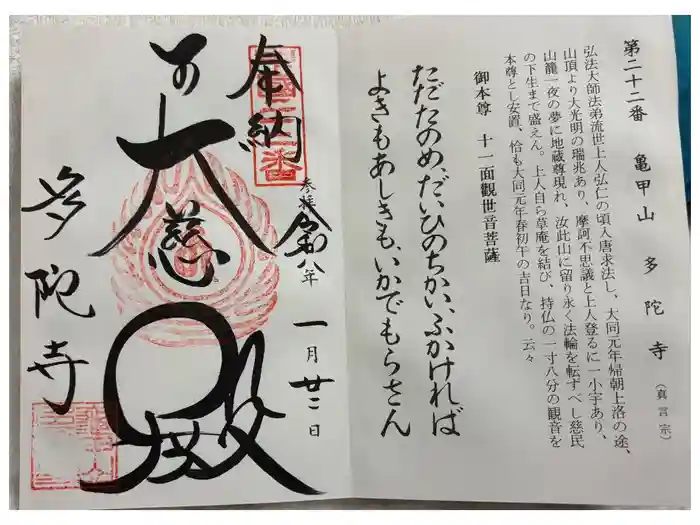 第二十二番　亀甲山　多陀寺　（真言宗）
弘法大師法弟流世上人弘仁の頃入唐求法し、大同元年帰朝上洛の途、
山頂より大光明の瑞兆あり、摩訶不思議と上人登るに一小宇あり、
山籠一夜の夢に地蔵尊現れ、汝此山に留り永く法輪を転ずべし慈民
の下生まで盛えん。上人自ら草庵を結び、持仏の一寸八分の観音を
本尊とし安置、恰も大同元年春初午の吉日なり。云々
御本尊　十一面觀世音菩薩
ただたのめ、だいひのちかい、ふかければ
よきもあしきも、いかでもらさん
奉納
参拝 令和八年
一月廿二日
大慈殿
多陀寺